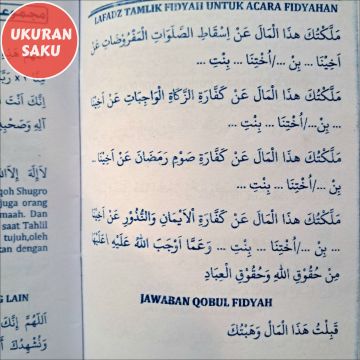 UKURAN
SAKU
LAFADZ TAMLIK FIDYAH UNTUK ACARA FIDYAHAN
مَلَّكْتُكَ هٰذَا الْمَالَ عَنْ إِسْقَاطِ الصَّلَوَاتِ الْمَفْرُوضَاتِ عَنْ
أَخِيْنَا ... بِنْ .../أُخْتِنَا ... بِنْتِ ...
مَلَّكْتُكَ هٰذَا الْمَالَ عَنْ كَفَّارَةِ الزَّكَاةِ الْوَاجِبَاتِ عَنْ أَخِيْنَا
... بِنْ .../أُخْتِنَا ... بِنْتِ ...
مَلَّكْتُكَ هٰذَا الْمَالَ عَنْ كَفَّارَةِ صَوْمِ رَمَضَانَ عَنْ أَخِيْنَا ...
بِنْ .../أُخْتِنَا ... بِنْتِ ...
مَلَّكْتُكَ هٰذَا الْمَالَ عَنْ كَفَّارَةِ الْاَيْمَانِ وَالنُّذُوْرِ عَنْ أَخِيْنَا
... بِنْ .../أُخْتِنَا ... بِنْتِ ... وَعَمَّا أَوْجَبَ اللّٰهُ عَلَيْهِ /عَلَيْهَا
مِنْ حُقُوْقِ اللّٰهِ وَحُقُوْقِ الْعِبَادِ
JAWABAN QOBUL FIDYAH
قَبِلْتُ هٰذَا الْمَالَ وَهَبْتُكَ
إِنَّكَ أَنْتَ
آلِهِ وَصَحْبِهِ
لَا إِلٰهَ إِلَّا اللهُ
qoh Shugro
juga orang
maah. Dan
saat Tahlil
tujuh,oleh
tan dengan
NG LAIN
اَللّٰهُمَّ إِنَّكَ
وَنُشْهِدُكَ أَ